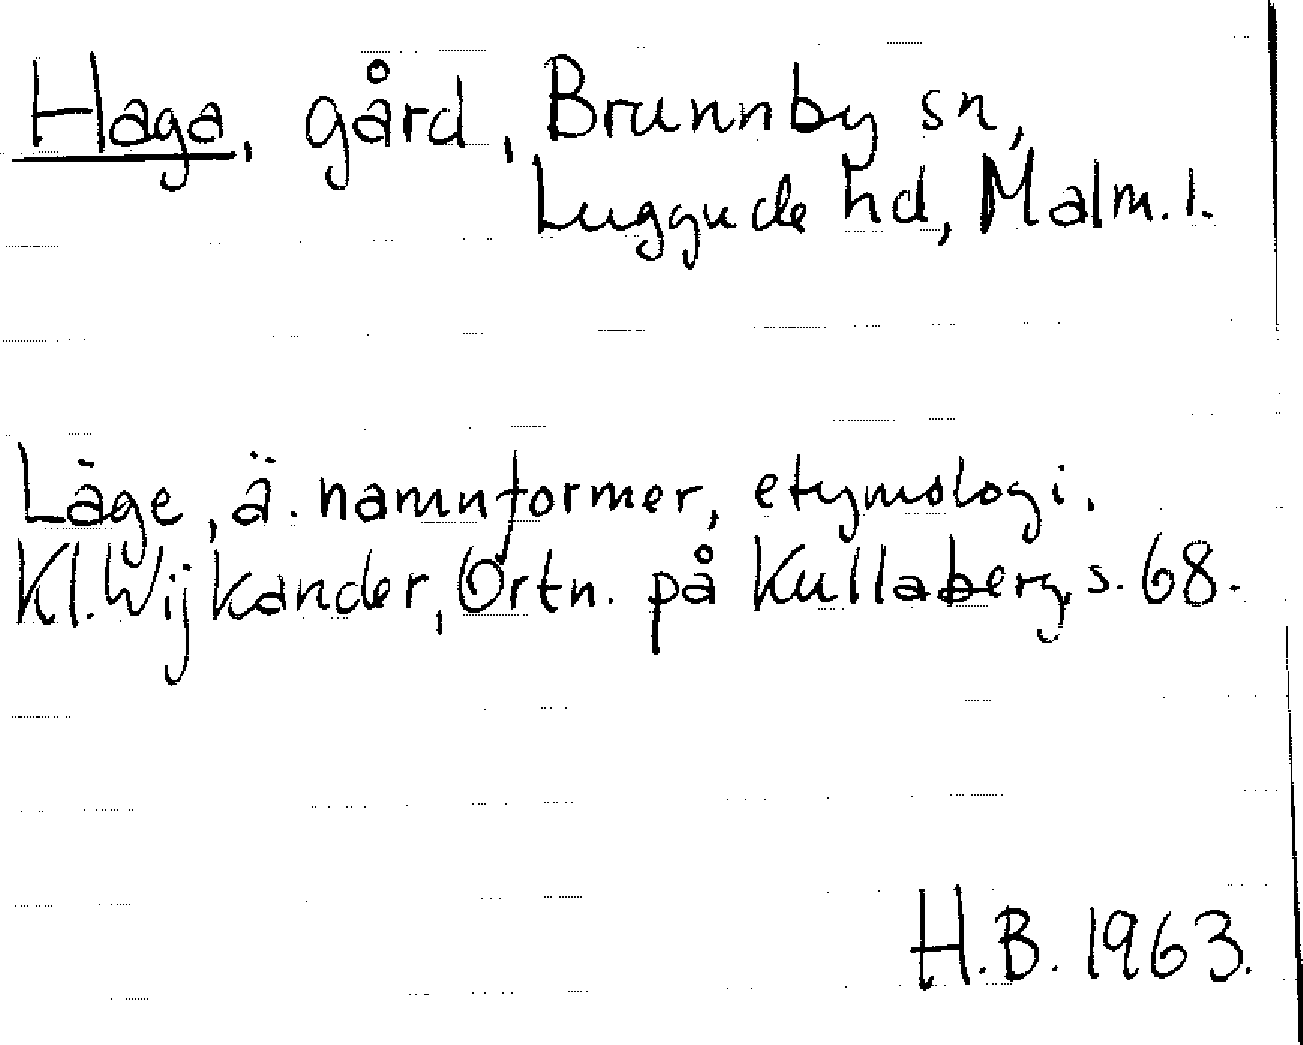 Haga, gård, Brunnby sn,
Luggude hd, Malm. l.
Läge, ä. namnformer, etymologi.
Kl. Wijkander, Ortn. på Kullaberg, s. 68.
H.B. 1963.